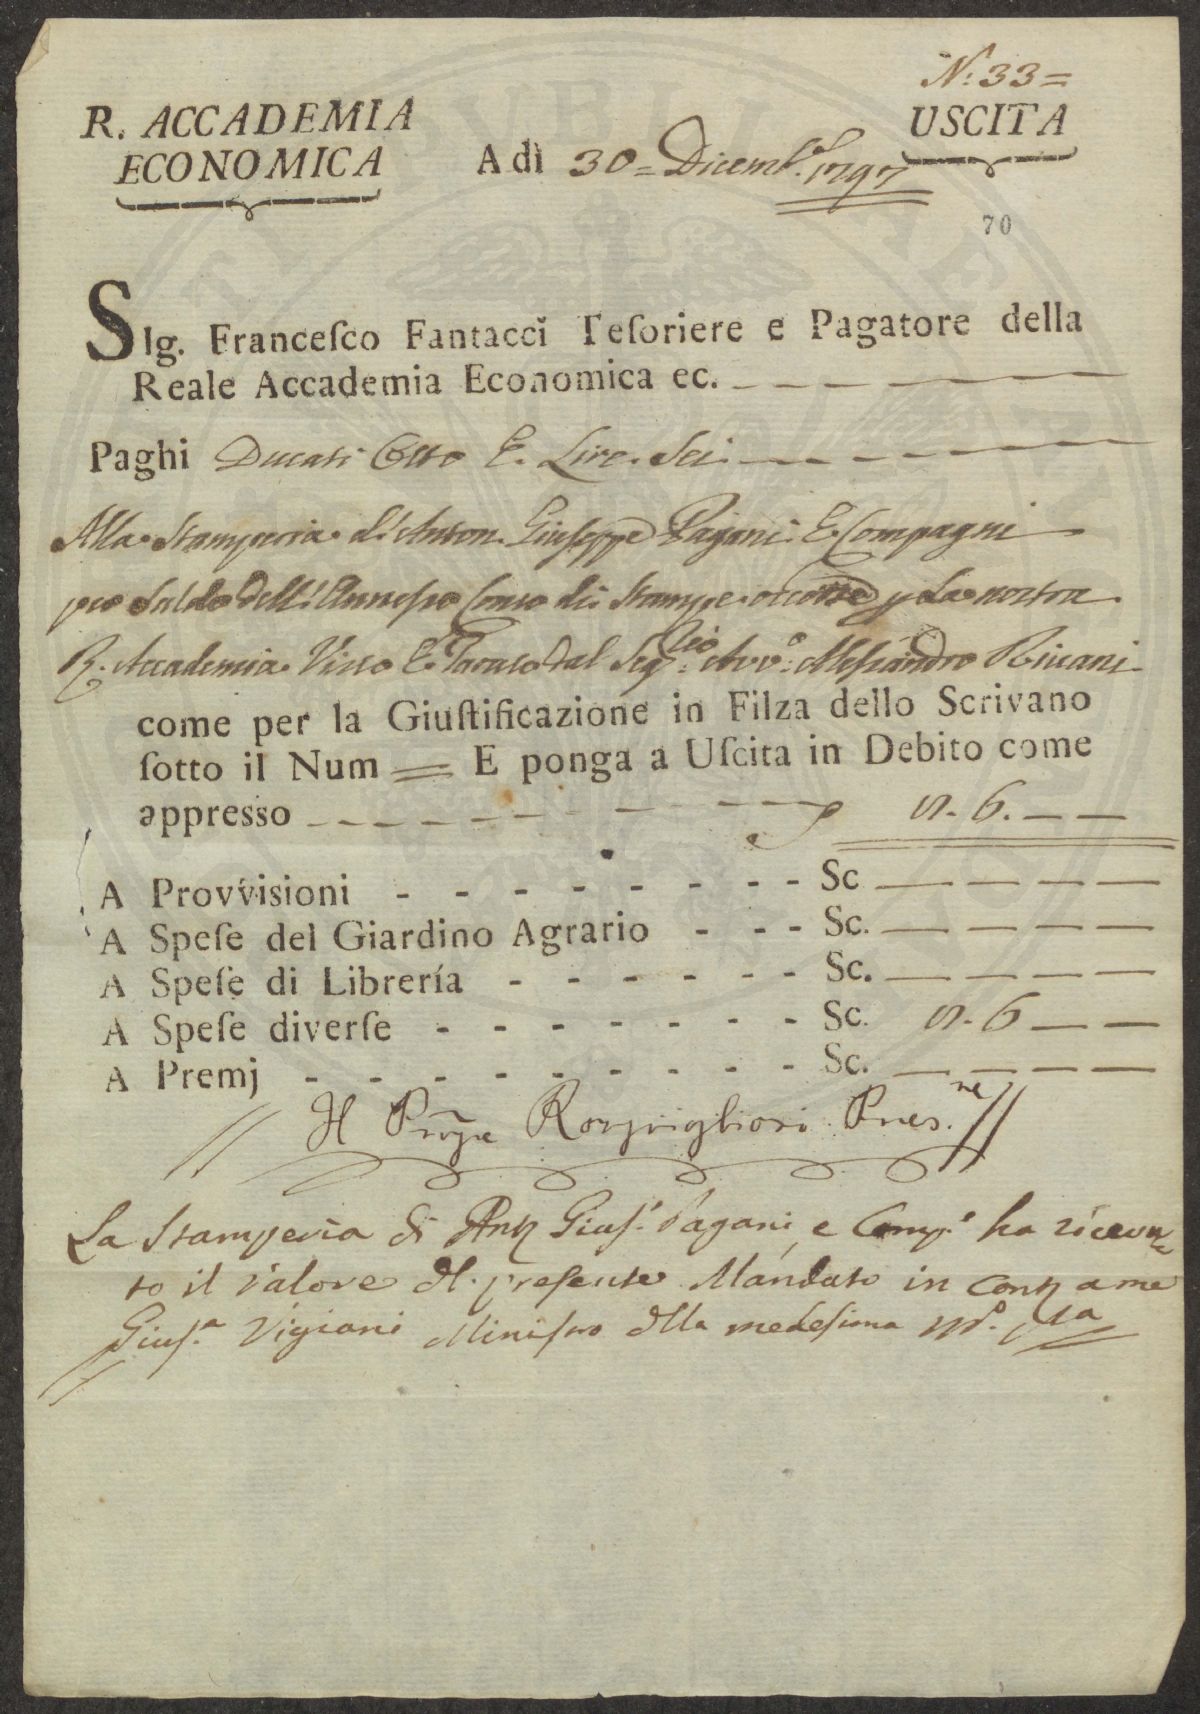 N. 33 =
R. ACCADEMIA
ECONOMICA
A dì 30 = Dicemb.e 1797
USCITA
70
SIg. Franceſco Fantacci Teſoriere e Pagatore della
Reale Accademia Economica ec.
Paghi Ducati Otto E. Lire. Sei.
Alla Stamperia di Anton. Giuseppe Pagani. E. Compagni
per Saldo dell'Annesso Conto di Stampe occorse p. La nostra
R. Accademia Visto E. Tarato dal Seg.rio Avv.o Alessandro Rivani
come per la Giuſtificazione in Filza dello Scrivano
ſotto il Num = E ponga a Uſcita in Debito come
appresso 8. 6. — —
A Provviſioni - - - - - - - - Sc — — — —
A Speſe del Giardino Agrario - - - Sc. — — — —
A Speſe di Librería - - - - - - - Sc. — — — —
A Speſe diverſe - - - - - - - - Sc. 8. 6 — —
A Premj - - - - - - - - - - Sc. — — — —
Il Pnpe Rospigliosi Pres.ne
La Stamperia di Anto Gius.e Pagani, e Comp.i ha ricevu-
to il valore del presente Mandato in Conti a me
Gius.e Vigiani Ministro della medesima